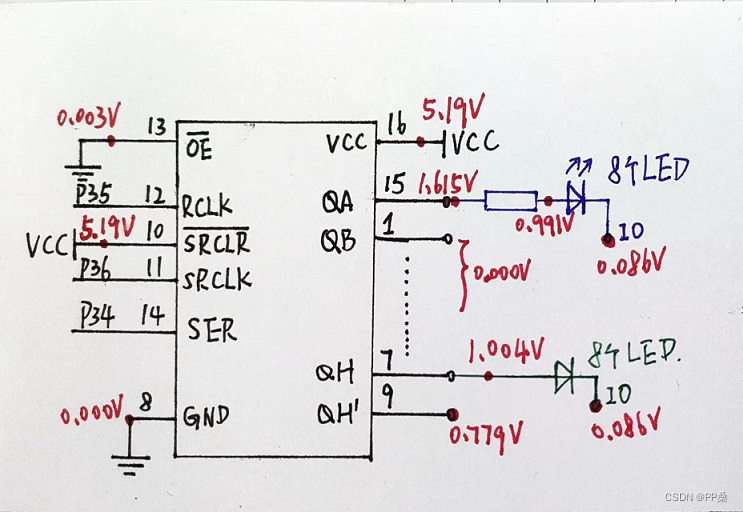 0.003V 13 OE
P35 12 RCLK
VCC 5.19V 10 SRCLR
P36 11 SRCLK
P34 14 SER
0.000V 8 GND
VCC 16 5.19V VCC
QA 15 1.615V 0.991V 8个LED
IO
0.086V
QB 1
0.000V
QH 7 1.004V 8个LED.
IO
0.086V
QH' 9
0.779V
CSDN @PP桑